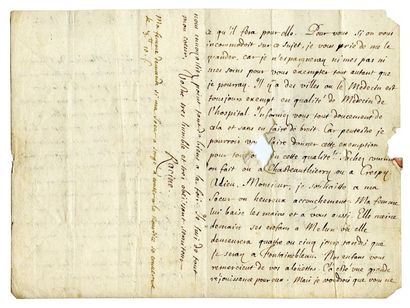 ce qu'il fera pour elle. Pour vous, si on vous
incommodoit sur ce sujet, je vous prie de me le
mander, car je n'espargneray ni mes pas ni
mes soins pour vous exempter tout autant que
je pourray. Il y a des villes ou le Medecin est
tousjours exempt en qualité de Medecin de
l'hospital. Informez vous tout doucement de
cela et sans en faire de bruit. Car peutestre je
pourrois vous faire donner cette exemption
pour en cette qualité. Sçachez comme
on fait ou à Chasteauthierry ou a Crespy
Adieu, Monsieur, je souhaitte a ma
Soeur un heureux accouchement. Ma femme
luy baise les mains et a vous aussi. Elle meine
demain ses enfans a Melun ou elle
demeurera quatre ou cinq jours tandis que
je seray a Fontainebleau. Nos enfans vous
remercient de vos aloüettes. Ç'a esté une grande
rejouissance pour eux. Mais je voudrois que vous ne
nous envoyassiez point tant de biens a la fois. Je suis de tout
mon coeur, Vostre tres humble et tres obeissant serviteur
Racine.
Ma femme demande si ma Soeur